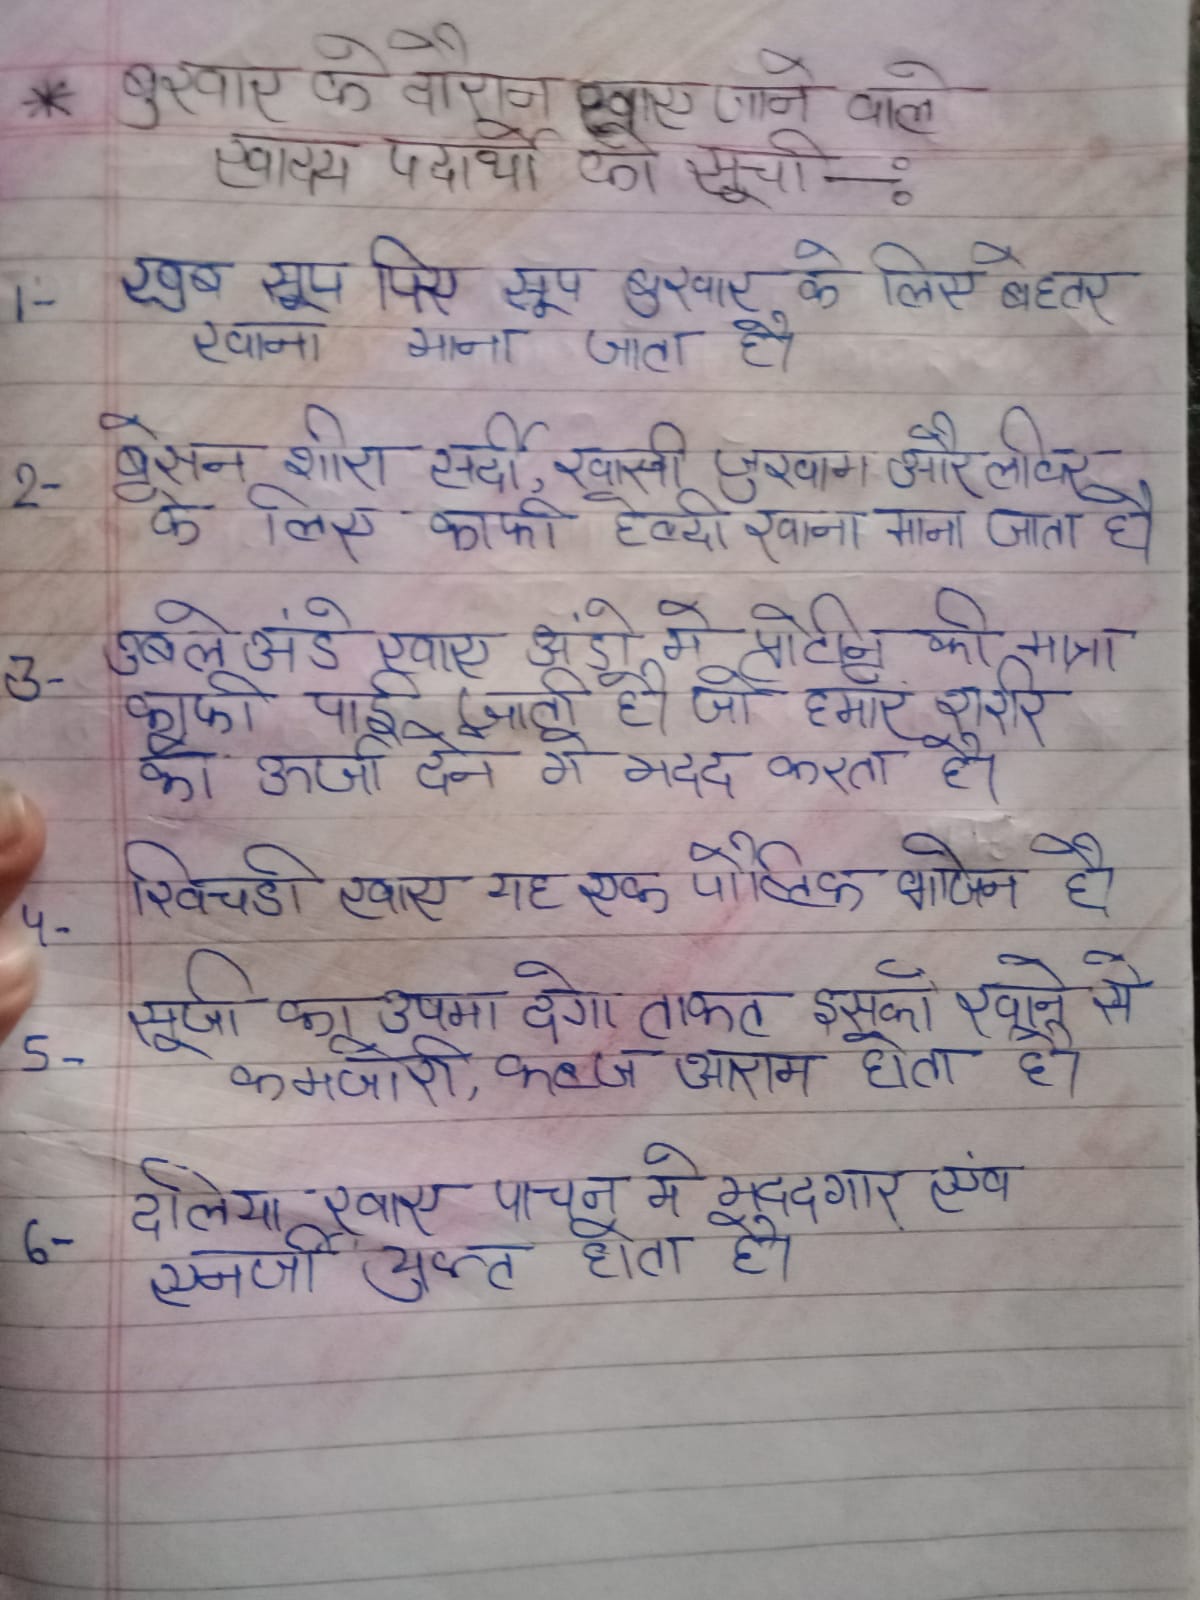 * बुखार के दौरान खाए जाने वाले
खाद्य पदार्थो की सूची —:
1- खुब सूप पिए सूप बुखार के लिए बेहतर
खाना माना जाता है।
2- बेसन शीरा सर्दी, खासी जुखाम और लीवर
के लिए काफी हेल्दी खाना माना जाता है
3- उबले अंडे खाए अंडो मे प्रोटीन की मात्रा
काफी पाई जाती है। जो हमारे शरीर
को ऊर्जा देने मे मदद करता है।
4- खिचडी खाए यह एक पौष्टिक भोजन है
5- सूजी का उपमा देगा ताकत इसको खाने से
कमजोरी, कब्ज आराम होता है।
6- दलिया खाए पाचन मे मददगार एंव
एनर्जी युक्त होता है।